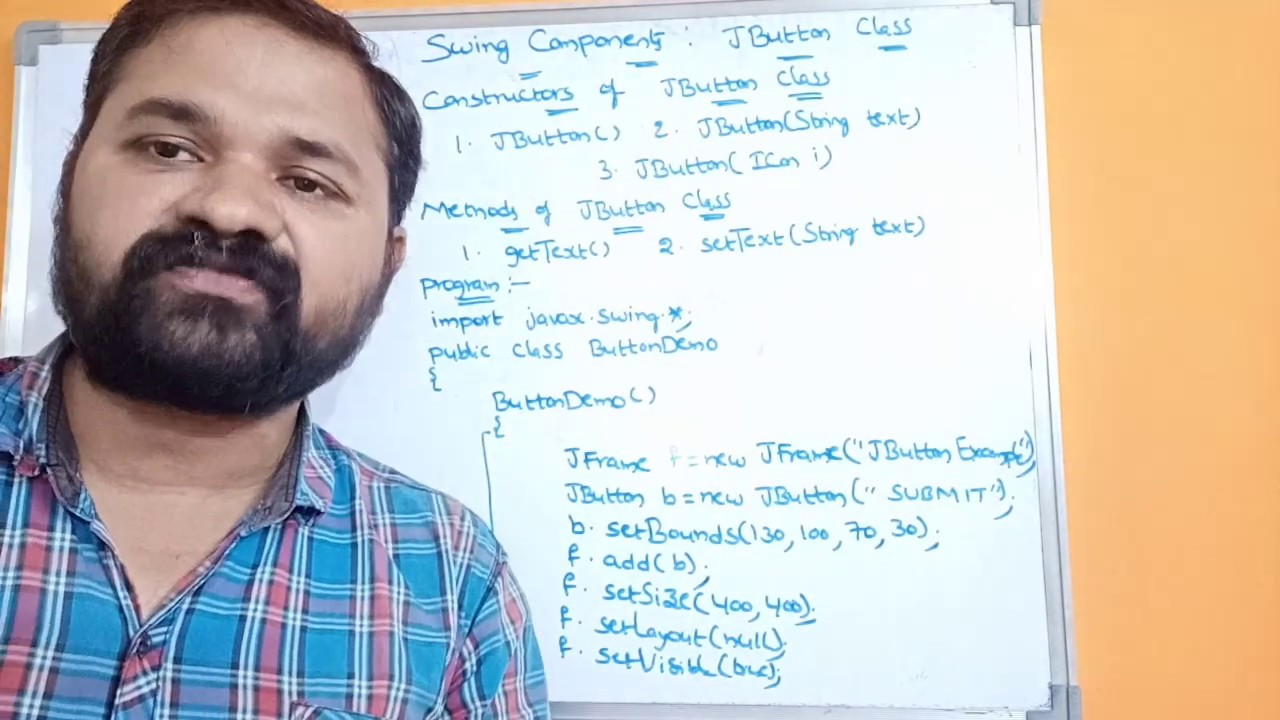 Swing Components : JButton Class
Constructors of JButton Class
1. JButton() 2. JButton(String text)
3. JButton( ICon i)
Methods of JButton Class
1. getText() 2. setText(String text)
program :-
import javax.swing.*;
public class ButtonDemo
{
ButtonDemo()
{
JFrame f = new JFrame("JButton Example");
JButton b = new JButton(" SUBMIT");
b. setBounds(130, 100, 70, 30);
f. add(b);
f. setSize(400, 400);
f. setLayout(null);
f. setVisible(true);